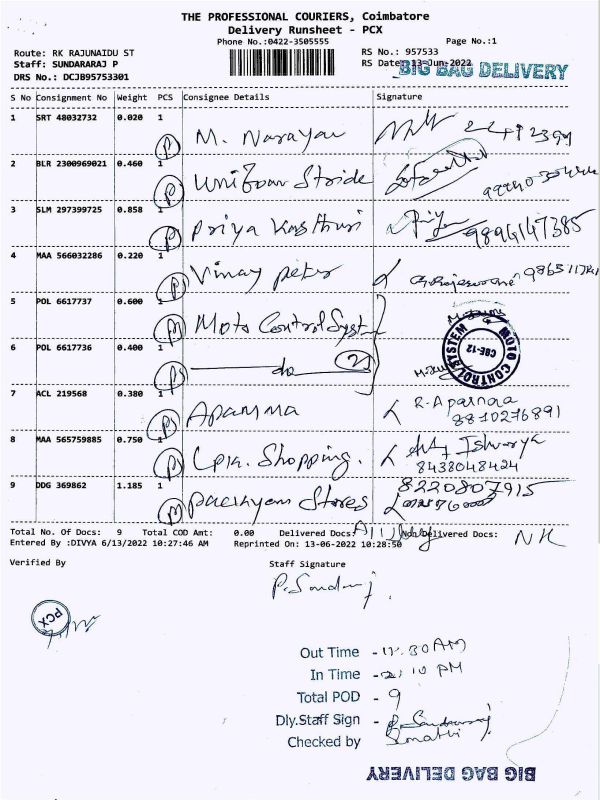 THE PROFESSIONAL COURIERS, Coimbatore
Delivery Runsheet - PCX
Phone No.:0422-3505555
Page No.:1
Route: RK RAJUNAIDU ST
RS No.: 957533
Staff: SUNDARARAJ P
RS Date: 13-Jun-2022
BIG BAG DELIVERY
DRS No.: DCJB95753301
S No Consignment No Weight PCS Consignee Details Signature
1 SRT 48032732 0.020 1 M. Narayan
2 BLR 2300969021 0.460 1 Uniform Stride
3 SLM 297399725 0.858 1 Priya Kasthuri Priya 9894147385
4 MAA 566032286 0.220 1 Vinay peter
5 POL 6617737 0.600 1 Moto Control Syst
6 POL 6617736 0.400 1 do 2
MOTO CONTROL SYSTEM CBE-12
7 ACL 219568 0.380 1 Aparnna R. Aparnaa
8810276891
8 MAA 565759885 0.750 1 Shopping. Ishvarya
8438048424
9 DDG 369862 1.185 1 Stores 8220807915
Total No. Of Docs: 9 Total COD Amt: 0.00 Delivered Docs: Non Delivered Docs: Nil
Entered By :DIVYA 6/13/2022 10:27:46 AM Reprinted On: 13-06-2022 10:28:50
Verified By Staff Signature
P. Sundaraj.
PCX
Out Time - 11.30 AM
In Time - 2.10 PM
Total POD - 9
Dly.Staff Sign - P. Sundararaj
Checked by
BIG BAG DELIVERY